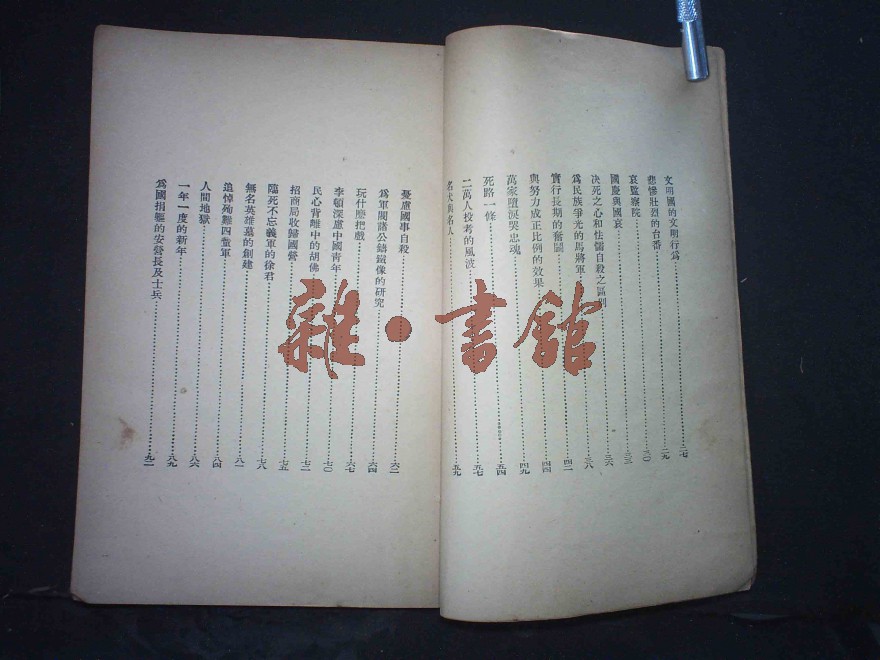 文明國的文明行爲……二七
悲慘壯烈的台番……二九
哀監察院……三〇
國慶與國哀……三三
决死之心和怯懦自殺之區別……三六
爲民族爭光的馬將軍……三八
實行長期的奮鬭……四二
與努力成正比例的效果……四四
萬家墮淚哭忠魂……四九
死路一條……五四
二萬人投考的風波……五七
名犬與名人……五九
憂慮國事自殺……六二
爲軍閥諸公鑄鐵像的研究……六四
玩什麽把戲……六七
李頓深慮中國靑年……七〇
民心背離中的胡佛……七二
招商局收歸國營……七五
臨死不忘義軍的徐君……七八
無名英雄墓的創建……八一
追悼殉難四螢軍……八四
人間地獄……八六
一年一度的新年……八九
爲國捐軀的安營長及士兵……九二
雜·書館